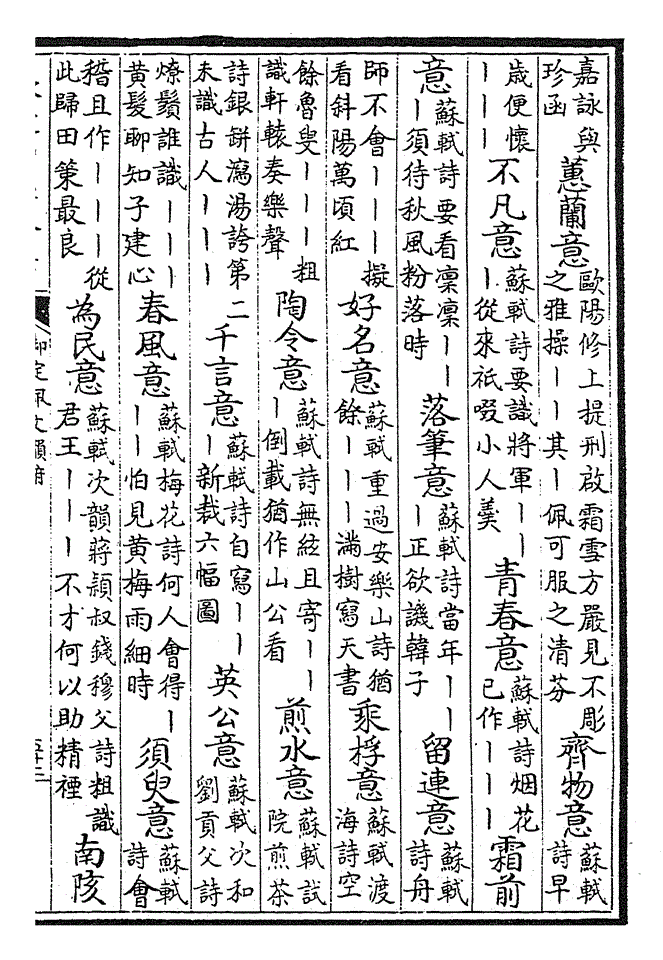 嘉詠與珍函蕙蘭意歐陽修上提刑啟霜雪方嚴見不彫之雅操｜｜其｜佩可服之清芬齊物意蘇軾詩早
歲便懷｜｜｜不凡意蘇軾詩要識將軍｜｜｜從來祇啜小人羹青春意蘇軾詩烟花已作｜｜｜霜前
意蘇軾詩要看凜凜｜｜｜須待秋風粉落時落筆意蘇軾詩當年｜｜｜正欲譏韓子留連意蘇軾詩舟
師不會｜｜｜擬看斜陽萬頃紅好名意蘇軾重過安樂山詩猶餘｜｜｜滿樹寫天書乘桴意蘇軾渡海詩空
餘魯叟｜｜｜粗識軒轅奏樂聲陶令意蘇軾詩無絃且寄｜｜｜倒載猶作山公看煎水意蘇軾試院煎茶
詩銀缾瀉湯誇第二未識古人｜｜｜千言意蘇軾詩自寫｜｜｜新裁六幅圖英公意蘇軾次和劉貢父詩
燎鬚誰識｜｜｜黃髮聊知子建心春風意蘇軾梅花詩何人會得｜｜｜怕見黃梅雨細時須臾意蘇軾詩會
稽且作｜｜｜從此歸田策最良為民意蘇軾次韻蔣穎叔錢穆父詩粗識君王｜｜｜不才何以助精禋南陔
御定佩文韻府